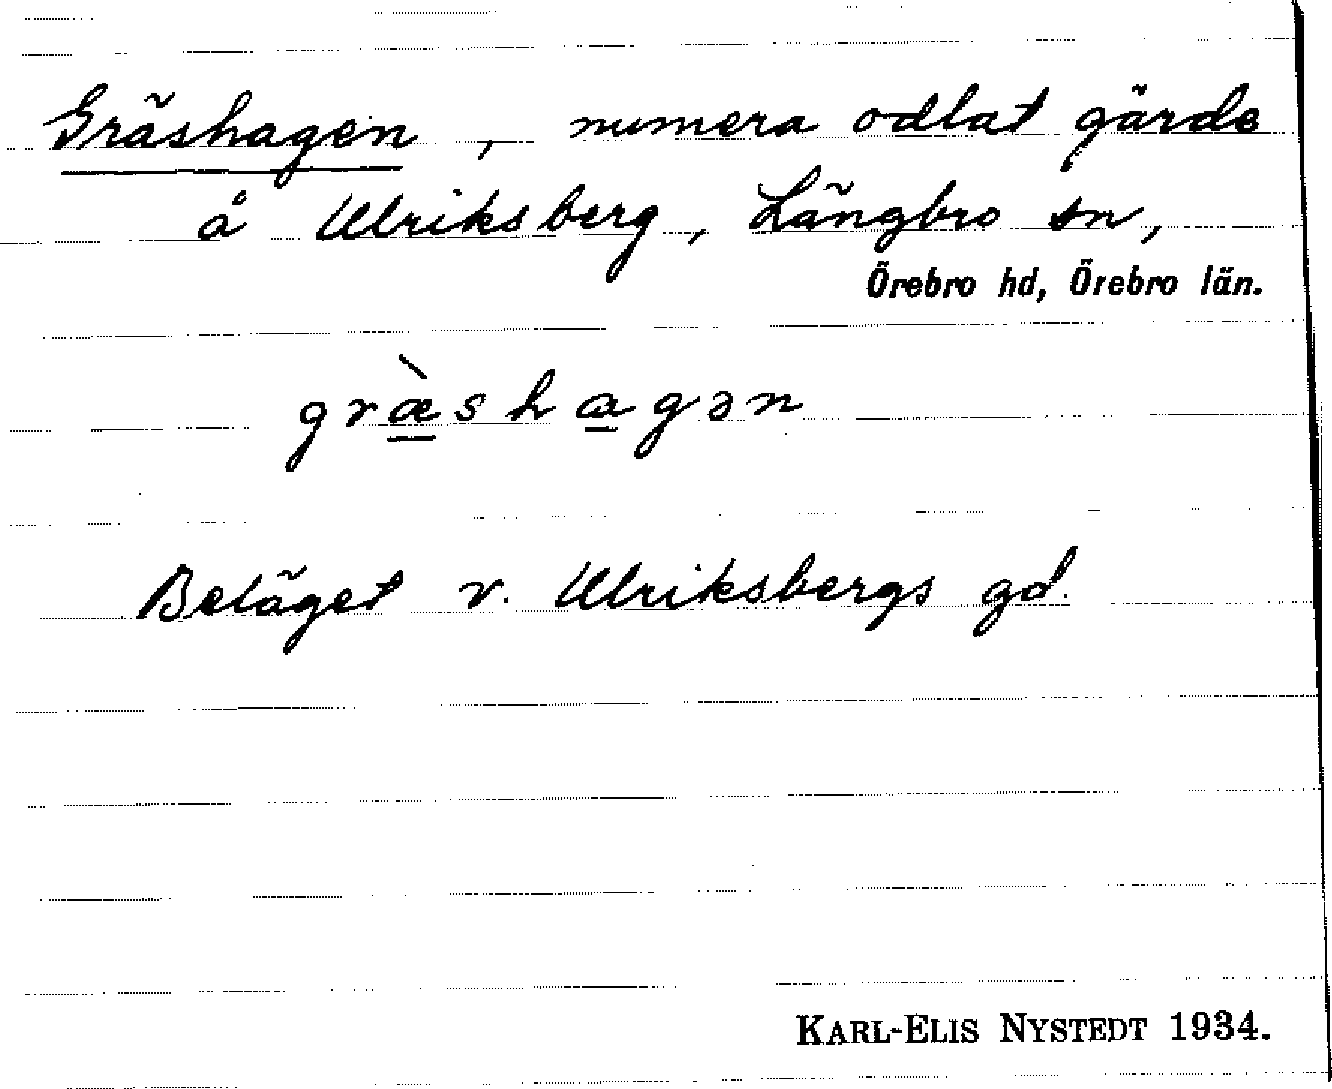 Gräshagen, numera odlat gärde
å Ulriksberg, Längbro sn,
Örebro hd, Örebro län.
græ̀shagən
Beläget v. Ulriksbergs gd.
KARL-ELIS NYSTEDT 1934.